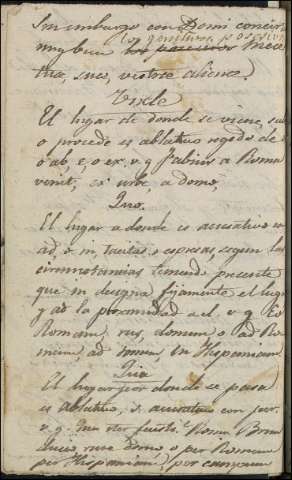 Sin embargo con Domi concier
los genitivos posesivos
muy bien los pareceres meæ
tuæ, suæ, vestræ alienæ.
Unde
El lugar de donde se viene, sale
o procede es ablativo regido de a
o ab, e, o ex. v. g. Fabius a Roma
venit, ex urbe, a domo,
Quo.
El lugar a donde es acusativo con
ad, o in, tacitas o espresas, segun las
circunstancias teniendo presente
que in designa fijamente el lugar
y ad la proximidad a el. v. g. Eo
Romam, rus, domum o ad Ro
mam, ad domum, in Hispaniam
Qua
El lugar por donde se pasa
es ablativo, o acusativo con per.
v. g. iter fecisti Roma
rure domo o per Romam
per Hispaniam, por